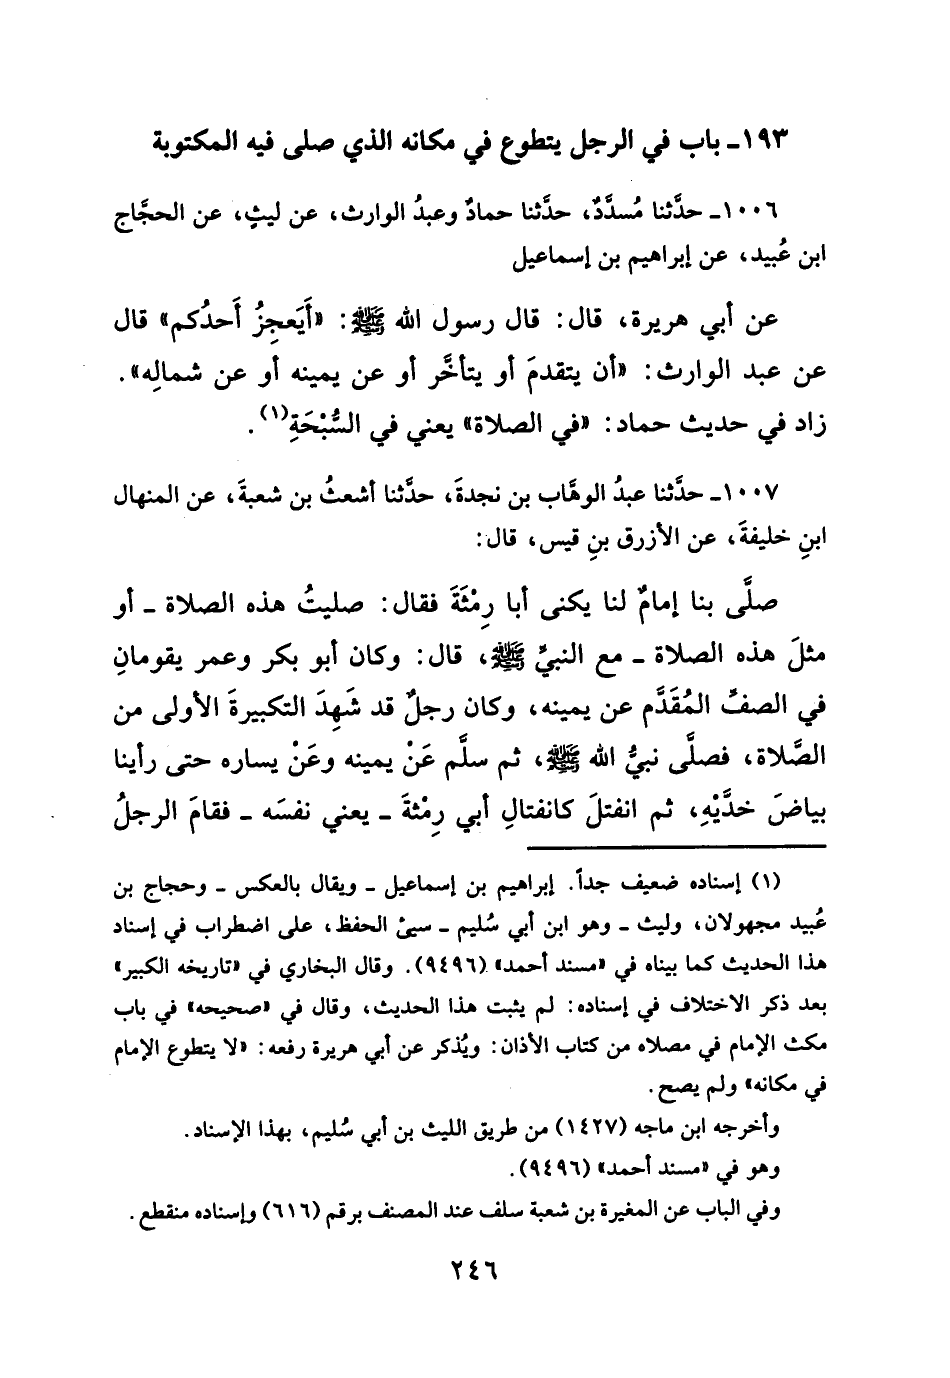 ١٩٣ـ باب في الرجل يتطوع في مكانه الذي صلى فيه المكتوبة
١٠٠٦ـ حدَّثنا مُسدَّدٌ، حدَّثنا حمادٌ وعبدُ الوارث، عن ليثٍ، عن الحجَّاج
ابن عُبيد، عن إبراهيم بن إسماعيل
عن أبي هريرة، قال: قال رسول الله ﷺ: «أَيَعجِزُ أَحدُكم» قال
عن عبد الوارث: «أن يتقدمَ أو يتأخَّر أو عن يمينه أو عن شمالِه».
زاد في حديث حماد: «في الصلاة» يعني في السُّبْحَةِ(١).
١٠٠٧ـ حدَّثنا عبدُ الوهَّاب بن نجدةَ، حدَّثنا أشعثُ بن شعبةَ، عن المنهال
ابنِ خليفةَ، عن الأزرق بنِ قيس، قال:
صلَّى بنا إمامٌ لنا يكنى أبا رِمْثَةَ فقال: صليتُ هذه الصلاة ـ أو
مثلَ هذه الصلاة ـ مع النبيِّ ﷺ، قال: وكان أبو بكر وعمر يقومانِ
في الصفِّ المُقَدَّم عن يمينه، وكان رجلٌ قد شَهِدَ التكبيرةَ الأولى من
الصَّلاة، فصلَّى نبيُّ الله ﷺ، ثم سلَّم عَنْ يمينه وعَنْ يساره حتى رأينا
بياضَ خدَّيْهِ، ثم انفتلَ كانفتالِ أبي رِمْثةَ ـ يعني نفسَه ـ فقامَ الرجلُ
(١) إسناده ضعيف جداً. إبراهيم بن إسماعيل ـ ويقال بالعكس ـ وحجاج بن
عُبيد مجهولان، وليث ـ وهو ابن أبي سُليم ـ سيئ الحفظ، على اضطراب في إسناد
هذا الحديث كما بيناه في «مسند أحمد» (٩٤٩٦). وقال البخاري في «تاريخه الكبير»
بعد ذكر الاختلاف في إسناده: لم يثبت هذا الحديث، وقال في «صحيحه» في باب
مكث الإمام في مصلاه من كتاب الأذان: ويُذكر عن أبي هريرة رفعه: «لا يتطوع الإمام
في مكانه» ولم يصح.
وأخرجه ابن ماجه (١٤٢٧) من طريق الليث بن أبي سُليم، بهذا الإسناد.
وهو في «مسند أحمد» (٩٤٩٦).
وفي الباب عن المغيرة بن شعبة سلف عند المصنف برقم (٦١٦) وإسناده منقطع.
٢٤٦